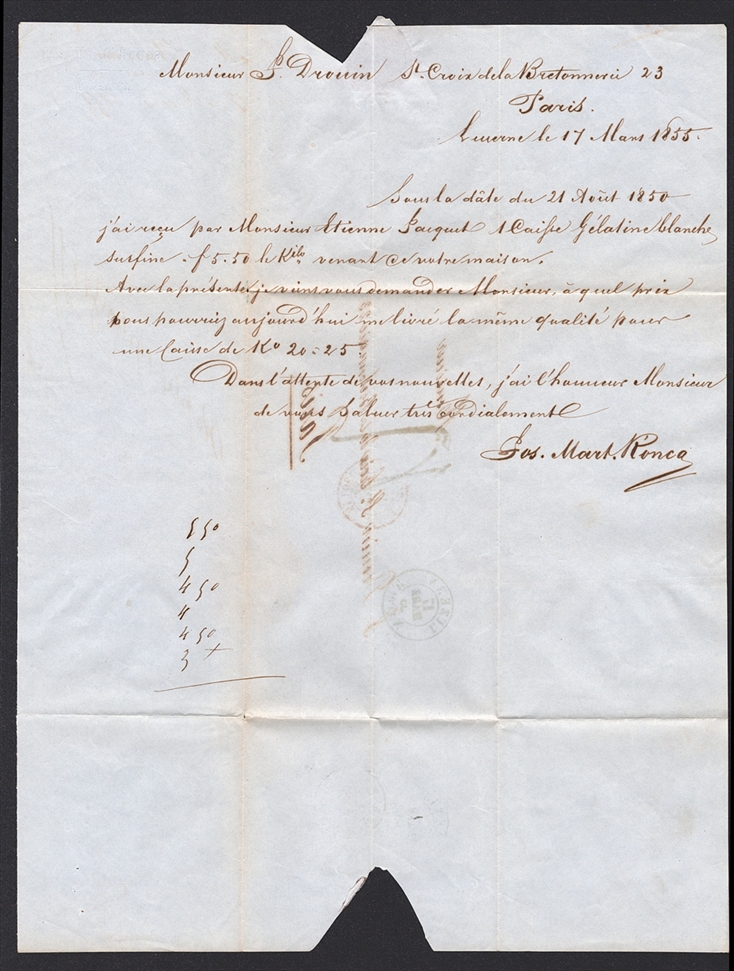 Monsieur P. Drouin St. Croix de la Bretonnerie 23
Paris.
Lucerne le 17 Mars 1855.
Sous la dâte du 21 Août 1850
j'ai reçu par Monsieur Etienne Pacquet 1 Caisse Gélatine blanche
surfine f 5.50 le Kilo venant de votre maison.
Avec la présente je viens vous demander Monsieur, à quel prix
vous pourriez aujourd'hui me livré la même qualité pour
une Caisse de Ko 20 = 25
Dans l'attente de vos nouvelles, j'ai l'honneur Monsieur
de vous saluer très cordialement
Jos. Mart. Ronca
5 50
5
4 50
4
4 50
3 +